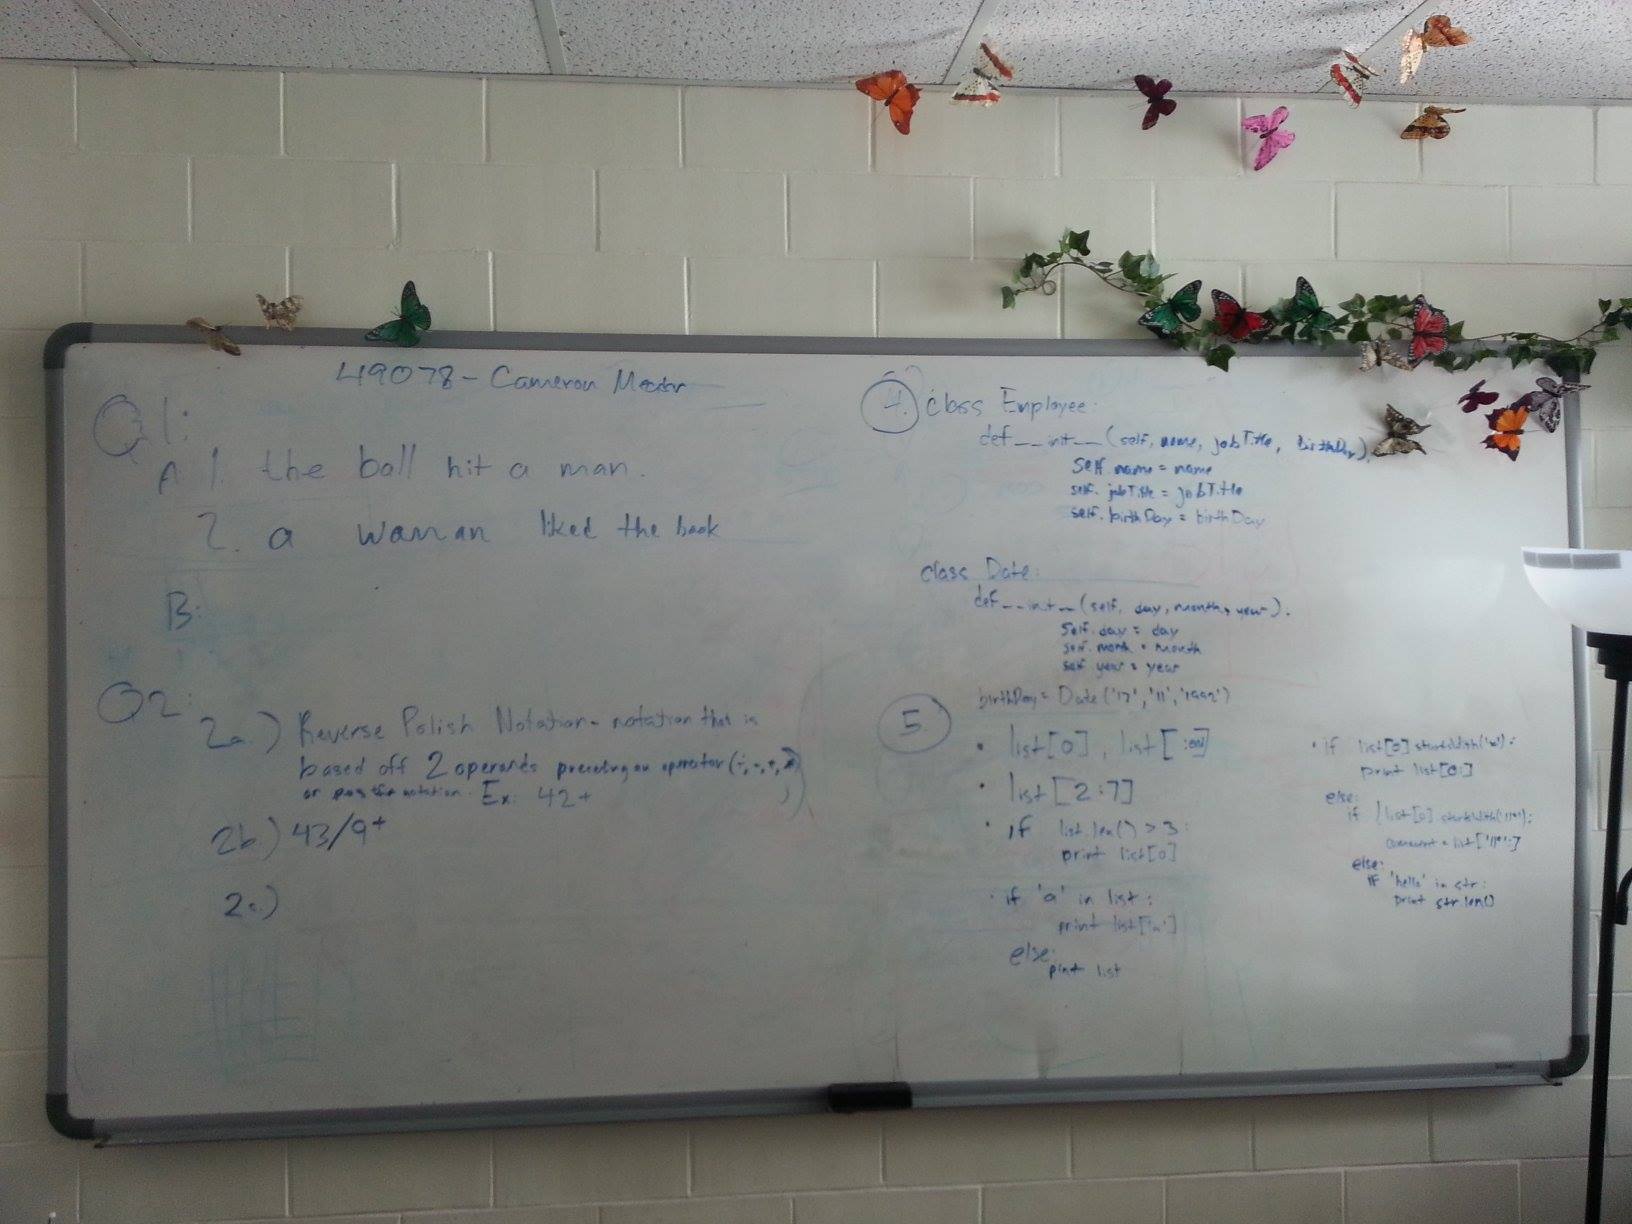 49078 - Cameron
Q1:
A 1. the ball hit a man.
2. a waman liked the book
B:
Q2:
2a.) Reverse Polish Notation - notation that is
based off 2 operands preceding an operator (÷,-,+,*)
or notation. Ex: 42+
2b.) 43/9+
2c.)
4. class Employee:
def __init__(self, name, jobTitle, birthDay):
self.name = name
self.jobTitle = jobTitle
self.birthDay = birthDay
class Date:
def __init__(self, day, month, year):
self.day = day
self.month = month
self.year = year
birthDay = Date('17','11','1992')
5.
• list[0], list[:end]
• list[2:7]
• if list.len() > 3:
print list[0]
• if 'a' in list:
print list['a']
else:
print list
• if list[0] startsWith('w'):
print list[0:]
else:
if list[0] startsWith('//*'):
comment = list['//*':]
else:
if 'hello' in str:
print str.len()